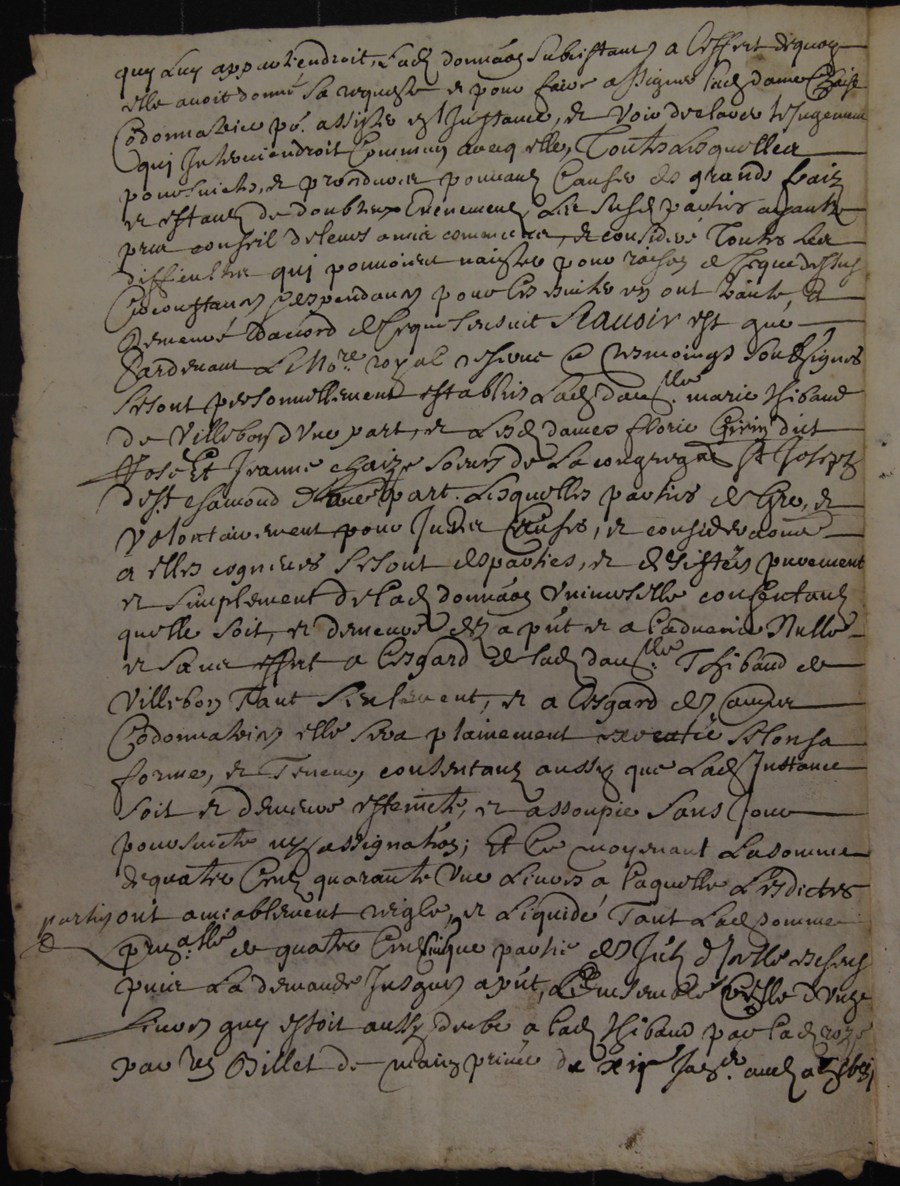 quy luy appartiendroit, lad donnaõn subsistant, a l'effect dequoy
elle auoit donné sa requeste et pour faire assigner lad dame Chaize
Codonnatrice po.r assister en l'Instance, et voir declarer le Jugement
quj Interuiendroit Commun auecq elle, Toutes lesquelles
poursuictes, et procedures pouuant Causer de grands fraix
et estant de doubteux Euenement, les susd parties ayant
prix conseil deleurs amis communs, et considéré Toutes les
difficultés quj pouuoient naistre pour raison de Ce que dessus
Circonstances despendances pour les euiter en ont traicté, et
demeuré d'accord de Ce que s'ensuit Scauoir est que
Pardeuant le No.re royal et tesmoings soubsignés
se sont personnellement establies lad dam.lle marie thibaud
de Villebon d'vne part, et lesd dames florie dict
Rose Et Jeanne chaize soeurs de la congrega.on S.t Joseph
de S.t chamond d'autre part. Lesquelles parties de Gre, et
volontairement pour Justes Causes, et considerations
a elles cogneues se sont desparties, et desistées purement
et simplement de lad donnaõn vniuerselle consentant
quelle soit, et demeure dez a pñt et a l'aduenir Nulle
et sans effect a l'esgard de lad dam.lle Thibaud de
Villebon Tant seulement, et a l'esgard des autres
Codonnatrices elle sera plainement executée selon sa
forme, et Teneur, consentant aussy que lad Instance
soit et demeure esteincte, et assoupie sans
poursuicte ny assignaõn; Et Ce moyenant la somme
de quatre Cent quarante vne liures a laquelle lesdictes
parties ont amiablement reiglé, et liquidé Tant lad somme
prin.alle de quatre Cent que partie des
puis la demande Jusques a pñt, Ensemble Celle d'vnze
liures quy estoit aussy deube a lad thibaud par lad roze
par vn Billet de main priuée du xij